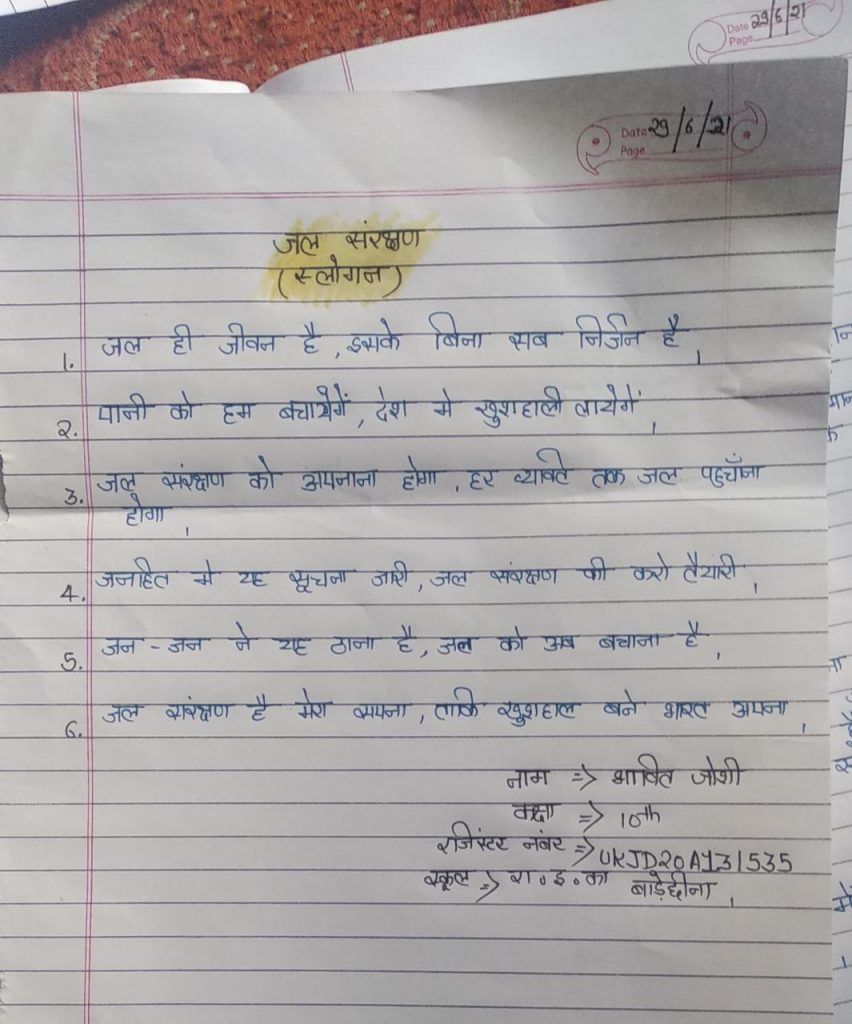 Date 29/6/21
Page
Date 29/6/21
Page
जल संरक्षण
(स्लोगन)
1. जल ही जीवन है, इसके बिना सब निर्जन है,
2. पानी को हम बचायेगें, देश मे खुशहाली लायेगें,
3. जल संरक्षण को अपनाना होगा, हर व्यक्ति तक जल पहुचाँना
होगा,
4. जनहित मे यह सूचना जारी, जल संरक्षण की करो तैयारी,
5. जन - जन ने यह ठाना है, जल को अब बचाना है,
6. जल संरक्षण है मेरा सपना, ताकि खुशहाल बने भारत अपना,
नाम => जोशी
कक्षा => 10th
रजिस्टर नंबर => UKJD20A131535
स्कूल => रा.इ.का बाड़ेछीना,